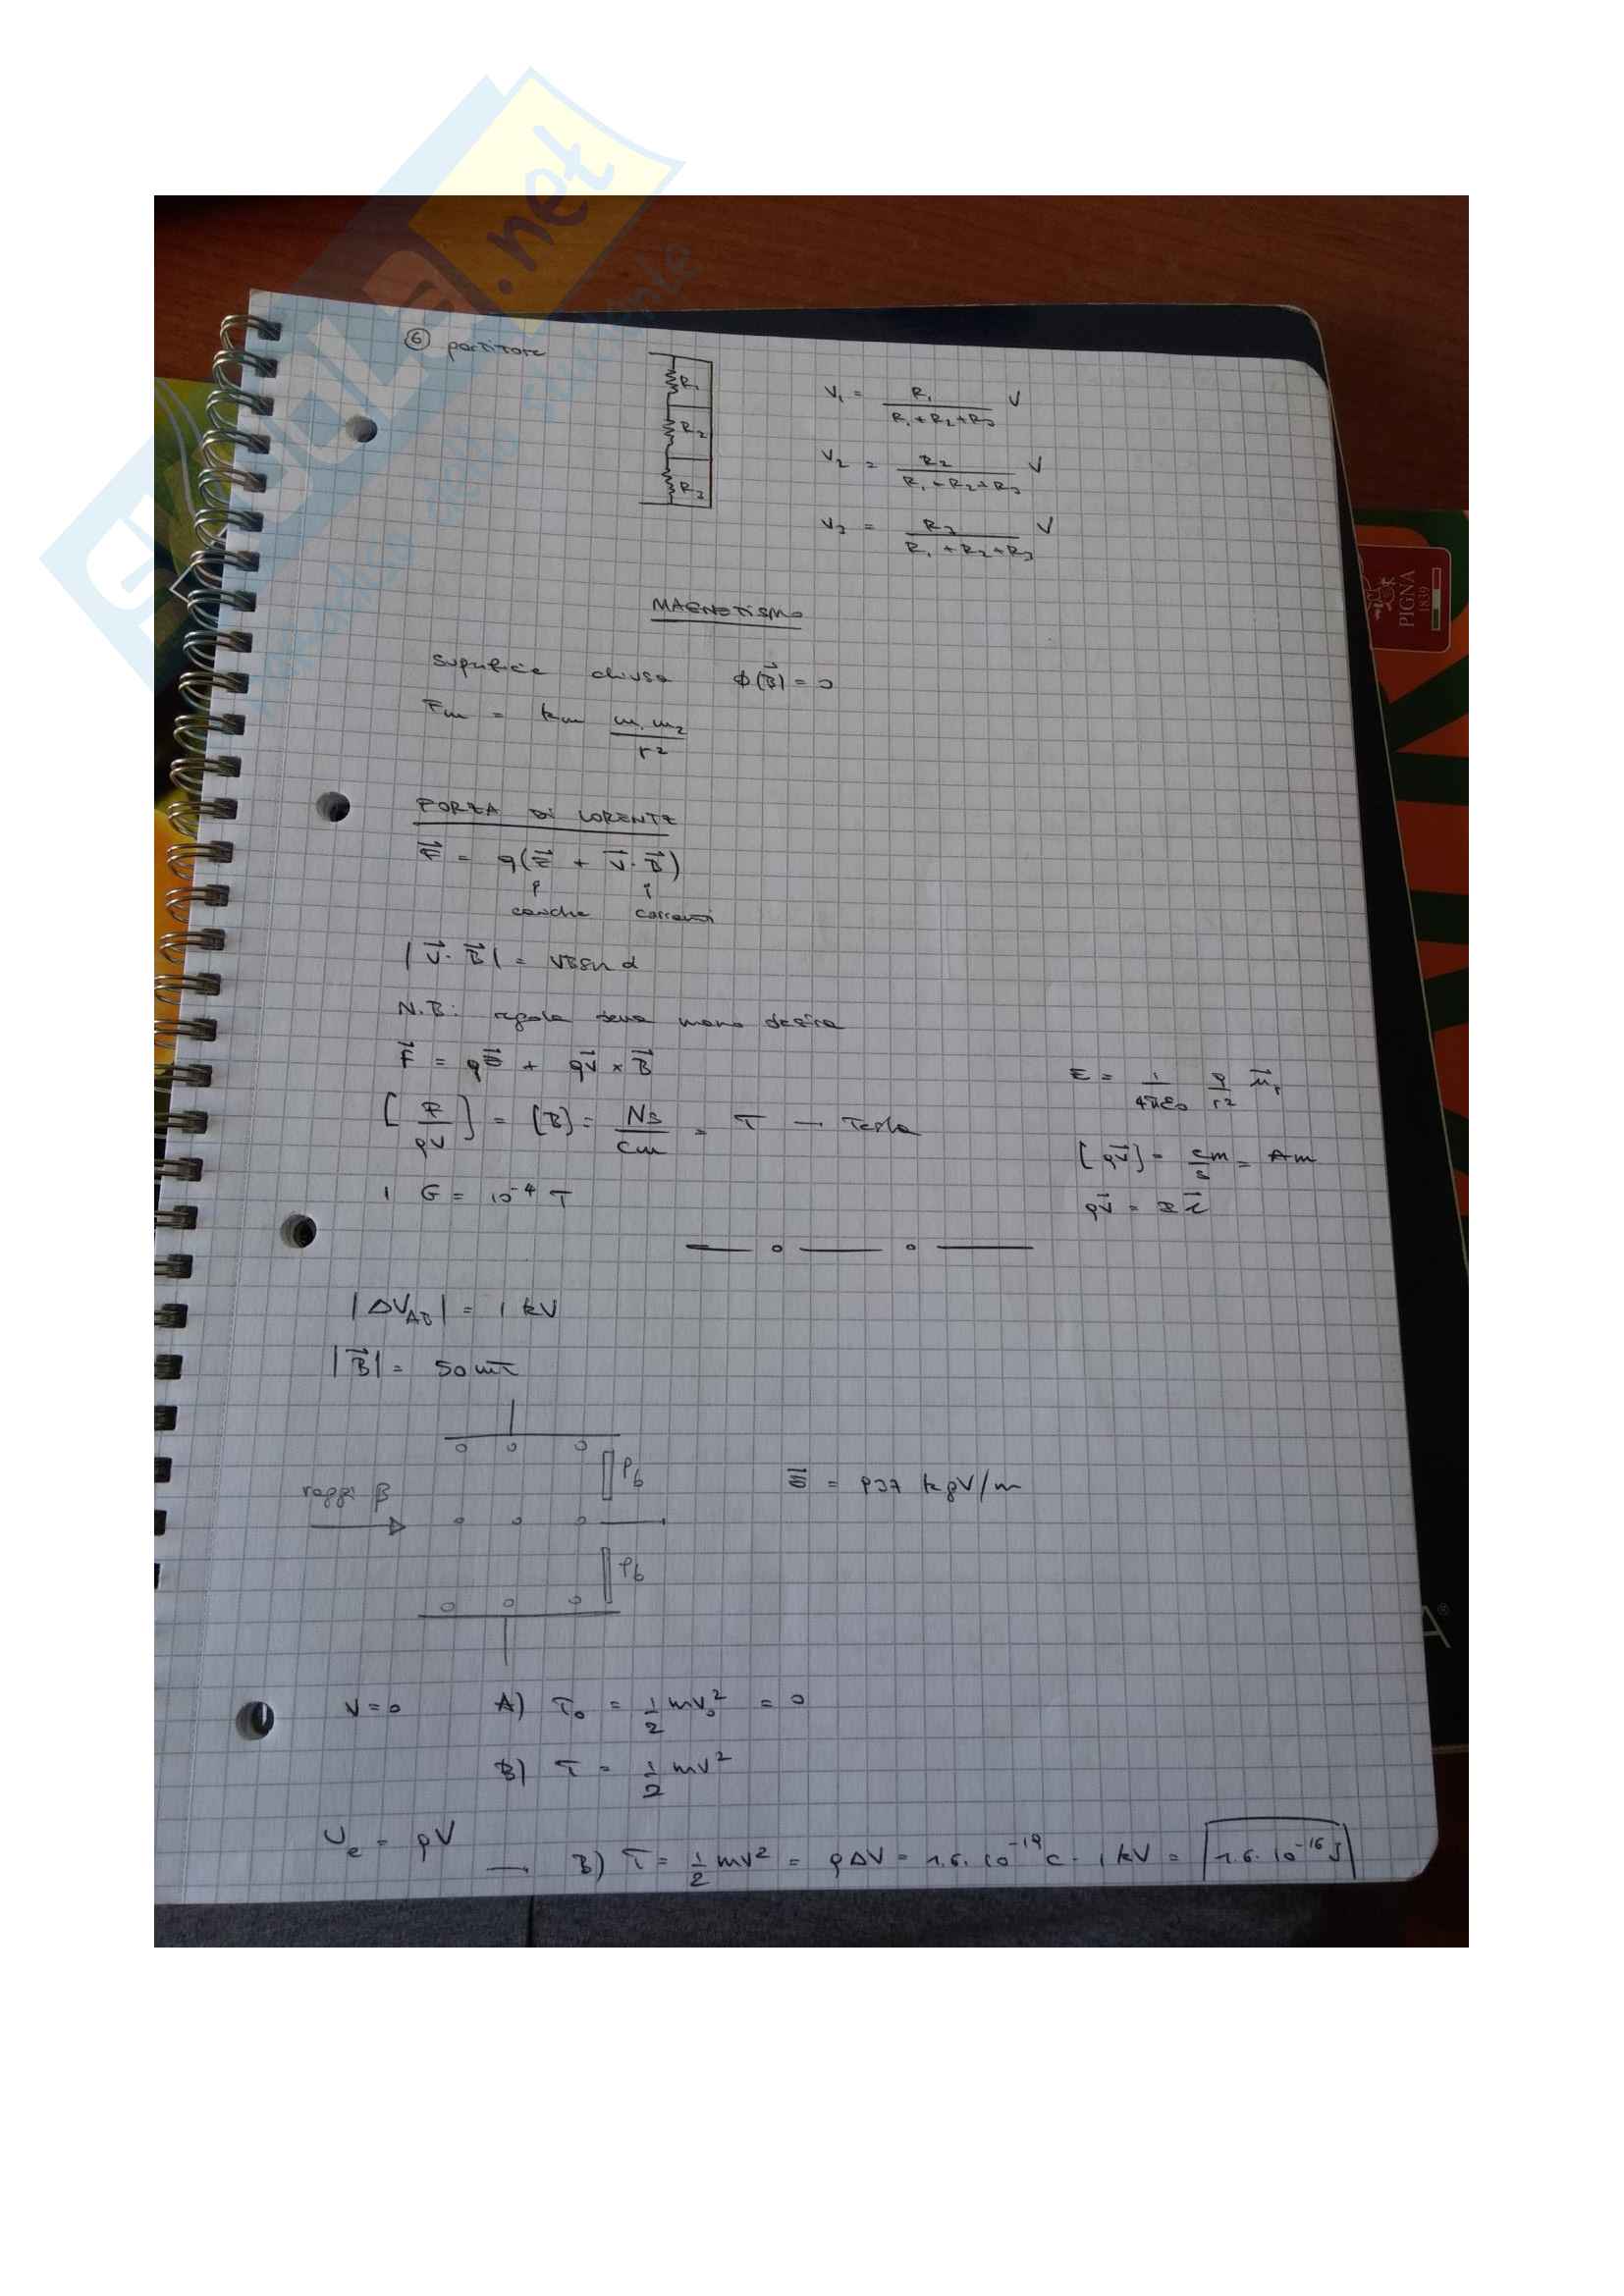 ⑥ partitore
R1
R2
R3
V1 = R1 / (R1 + R2 + R3) V
V2 = R2 / (R1 + R2 + R3) V
V3 = R3 / (R1 + R2 + R3) V
MAGNETISMO
superficie chiusa Φ(B⃗) = 0
Fm = km m1 m2 / r²
FORZA DI LORENTZ
F⃗ = q(E⃗ + V⃗ · B⃗)
cariche correnti
|V⃗ · B⃗| = VB sin α
N.B: regola della mano destra
F⃗ = qE⃗ + qV⃗ × B⃗
[F / qV] = [B] = Ns / Cm = T → Tesla
1 G = 10⁻⁴ T
E = 1 / 4πε0 q / r² u⃗r
[qV⃗] = Cm / s = Am
qV⃗
|ΔVAB| = 1 kV
|B⃗| = 50 mT
raggi β
Pb
Pb
V = 0 A) T0 = 1/2 mV0² = 0
B) T = 1/2 mV²
Ue = qV
→ B) T = 1/2 mV² = qΔV = 1.6 · 10⁻¹⁹ C · 1 kV = 1.6 · 10⁻¹⁶ J
PIGNA
1839
.net